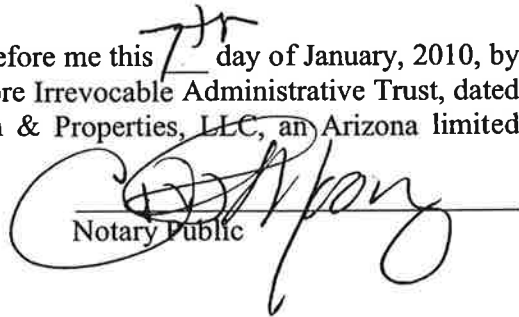 efore me this 7th day of January, 2010, by
ore Irrevocable Administrative Trust, dated
& Properties, LLC, an Arizona limited
Notary Public